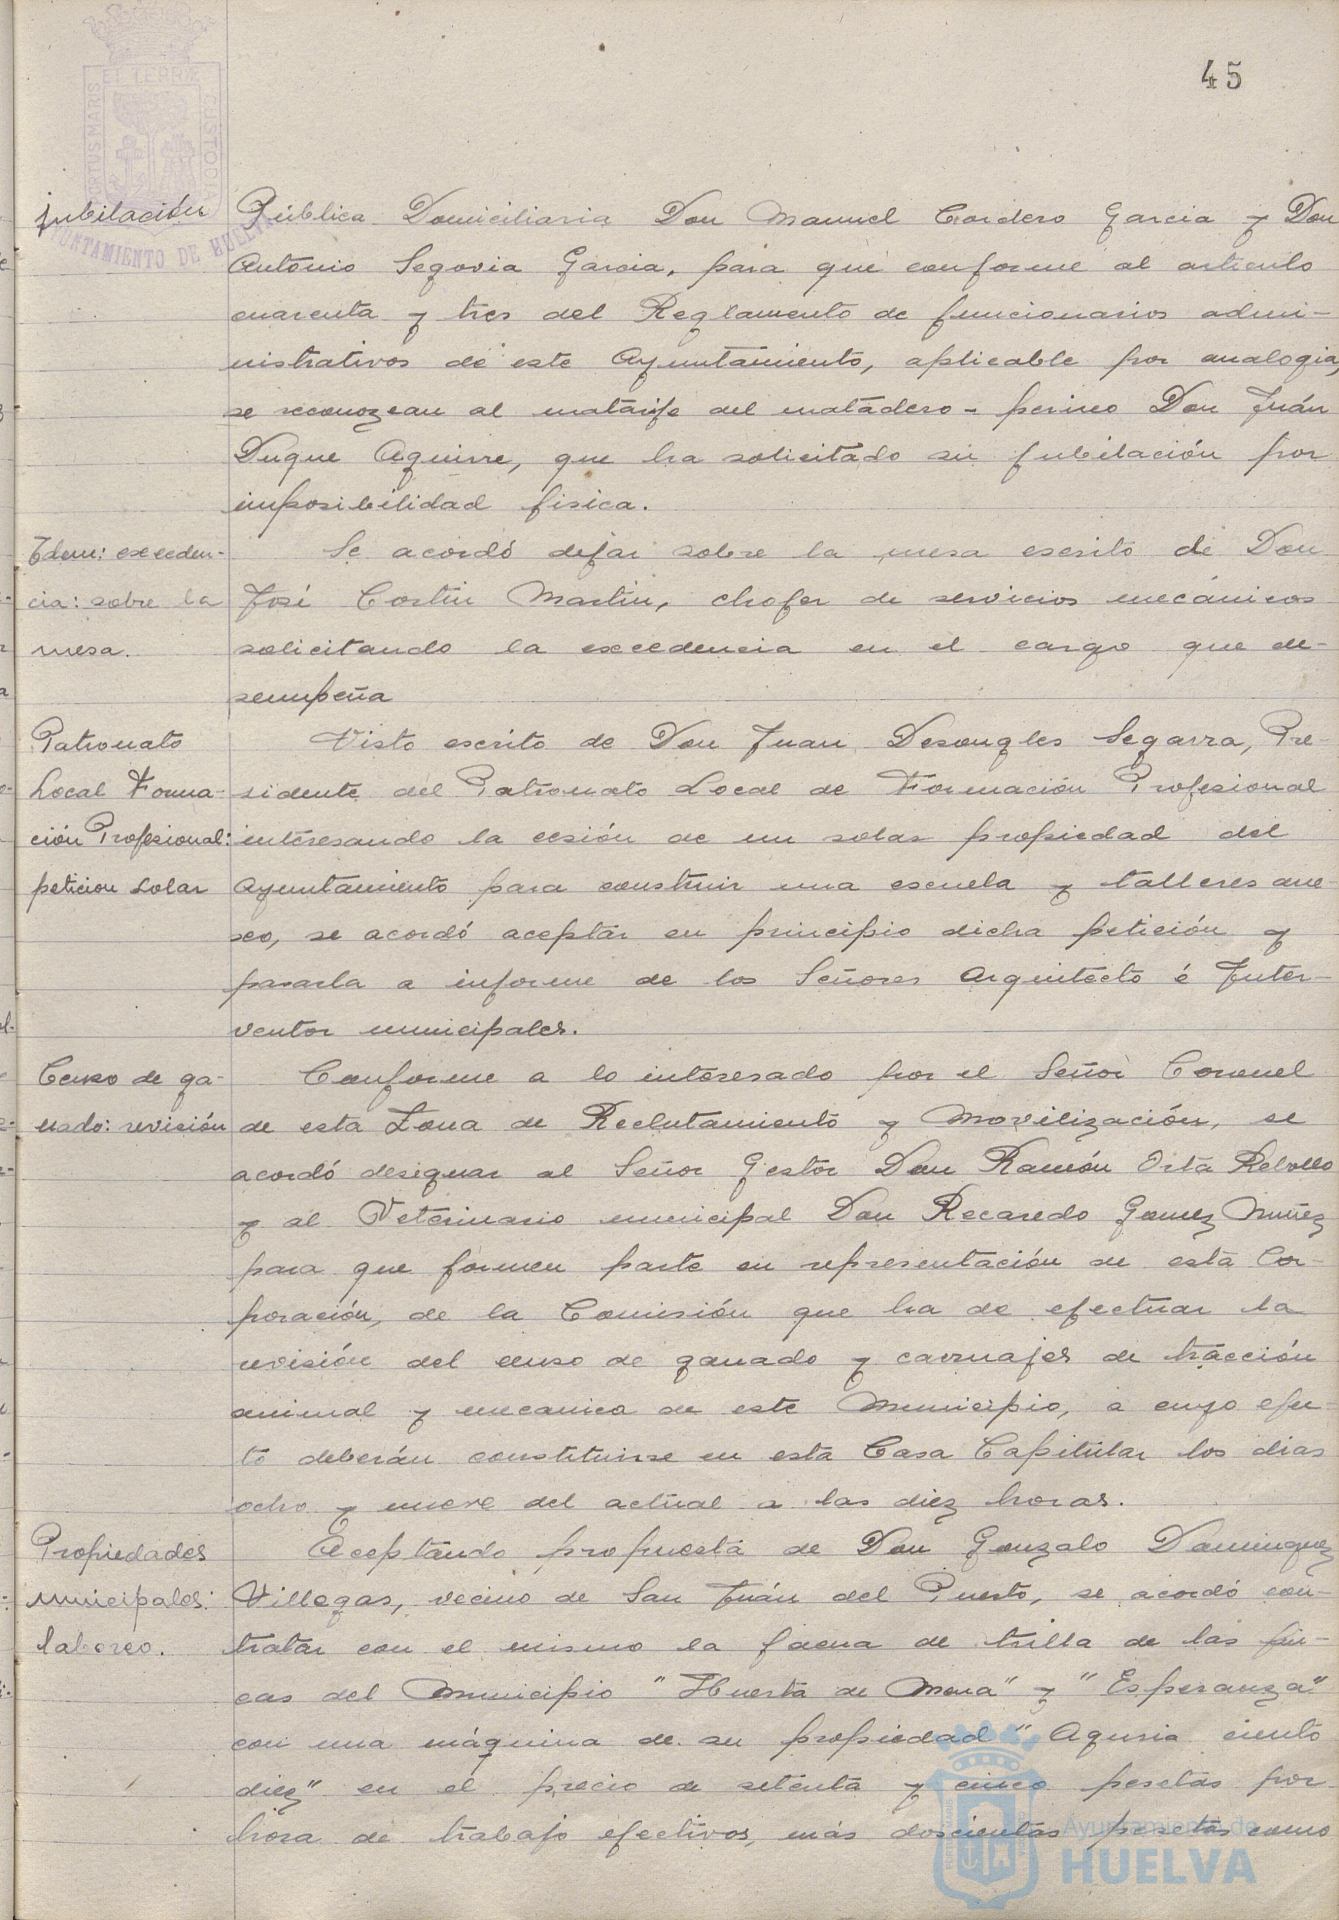 45
jubilación
Pública Domiciliaria Don Manuel Cordero Garcia y Don
Antonio Segovia Garcia, para que conforme al articulo
cuarenta y tres del Reglamento de funcionarios admi-
nistrativos de este Ayuntamiento, aplicable por analogia,
se reconozcan al matarife del matadero - perineo Don Juán
Duque Aguirre, que ha solicitado su jubilación por
imposibilidad fisica.
Idem: exceden-
cia: sobre la
mesa.
Se acordó dejar sobre la mesa escrito de Don
José Martin, chofer de servicios mecánicos
solicitando la excedencia en el cargo que de-
sempeña
Patronato
Local Forma-
ción Profesional:
peticion solar
Visto escrito de Don Juan Desongles Segarra, Pre-
sidente del Patronato Local de Formación Profesional
interesando la cesión de un solar propiedad del
Ayuntamiento para construir una escuela y talleres ane-
xo, se acordó aceptar en principio dicha petición y
pasarla a informe de los Señores Arquitecto é Inter-
ventor municipales.
Censo de ga-
nado: revisión
Conforme a lo interesado por el Señor Coronel
de esta Zona de Reclutamiento y Movilización, se
acordó designar al Señor Gestor Don Ramón Orta Rebollo
y al Veterinario municipal Don Recaredo Gomez Nuñez
para que formen parte en representación de esta Cor-
poración, de la Comisión que ha de efectuar la
revisión del censo de ganado y carruajes de tracción
animal y mecanica de este Municipio, a cuyo efec-
to deberán constituirse en esta Casa Capitular los dias
ocho y nueve del actual a las diez horas.
Propiedades
municipales:
laboreo.
Aceptando propuesta de Don Gonzalo Dominguez
Villegas, vecino de San Juán del Puerto, se acordó con-
tratar con el mismo la faena de trilla de las fin-
cas del Municipio "Huerta de Mena" y "Esperanza"
con una máquina de su propiedad " ciento
diez" en el precio de setenta y cinco pesetas por
hora de trabajo efectivos, más doscientas pesetas como
ORTUS MARIS ET TERRÆ CUSTODIA
AYUNTAMIENTO DE HUELVA
Ayuntamiento de
HUELVA